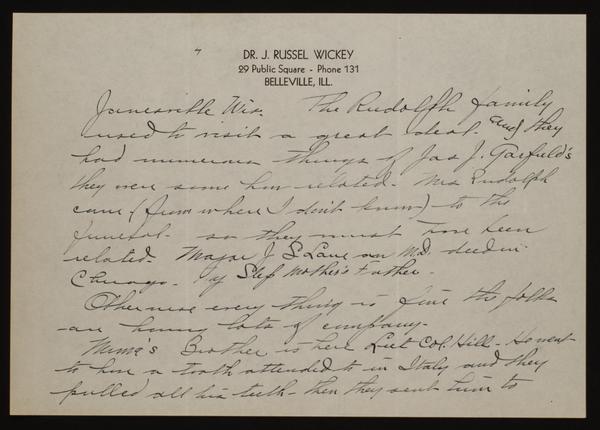 7
DR. J. RUSSEL WICKEY
29 Public Square - Phone 131
BELLEVILLE, ILL.
Janesville Wis. The Rudolph family
used to visit a great deal. and they
had numerous things of Jas J. Garfield's
they were some how related. Mrs Rudolph
came (from where I don't know) to the
funeral. so they must have been
related. Major J S Lane an M.D. died in
Chicago. My Step Mother's Father.
Otherwise every thing is fine the folks
are having lots of company.
Brother is here Lieut Col. Hill - He went
to have a tooth attended to in Italy and they
pulled all his teeth - then they sent him to